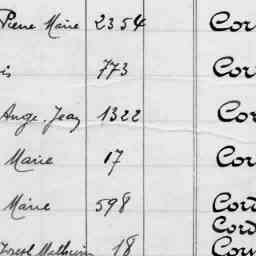 Pierre Marie 2354 Cor
is 773 Cor
Ange. Jean 1322 Cor
Marie 17 Cor
Marie 598 Cord
Cord
Joseph Mathurin 18 Corn